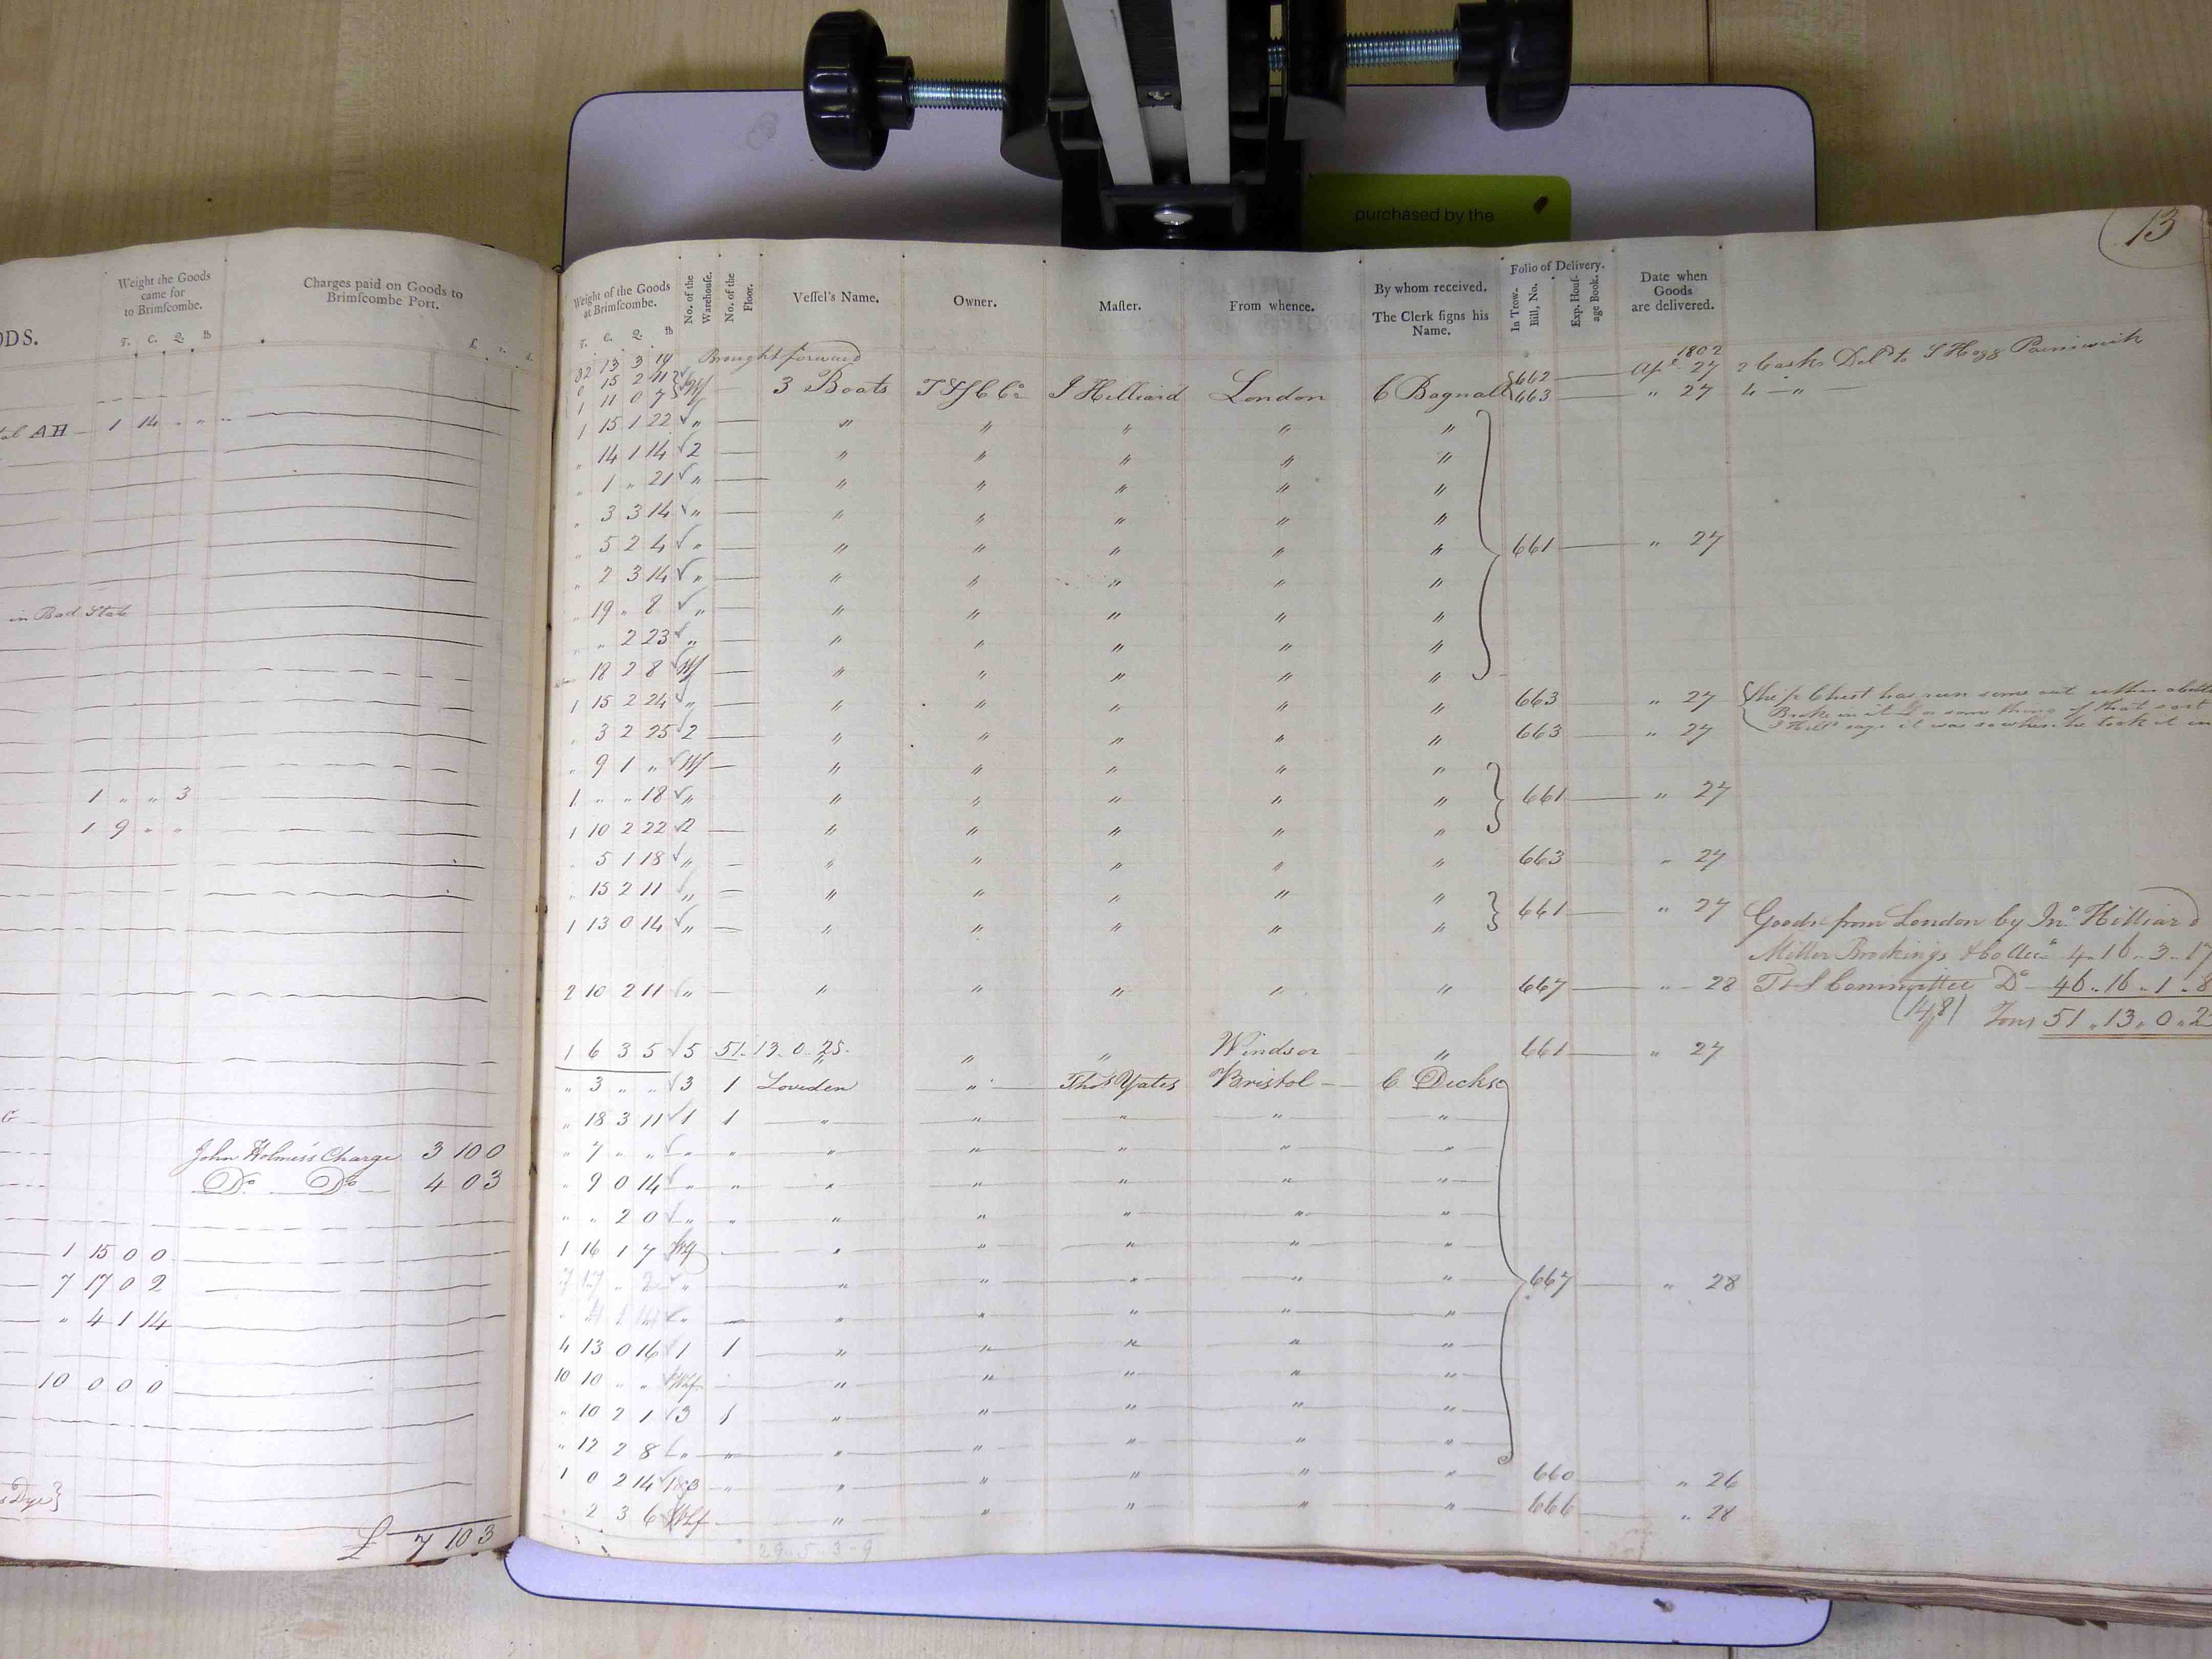 purchased by the
13
ODS.
Weight the Goods
came for
to Brimſcombe.
T. C. Q. lb
Charges paid on Goods to
Brimſcombe Port.
£ s. d.
AH 1 14 „ „
in Bad State
1 „ „ 3
1 9 „ „
John Holmes's Charge 3 10 0
Do Do 4 0 3
1 15 0 0
7 17 0 2
„ 4 1 14
10 0 0 0
Dye}
£ 7 10 3
Weight of the Goods
at Brimſcombe.
T. C. Q. lb
No. of the
Warehouſe.
No. of the
Floor.
Veſſel's Name.
Owner.
Maſter.
From whence.
By whom received.
The Clerk ſigns his
Name.
Folio of Delivery.
In Tow.
Bill, No.
Exp. Houſ-
age Book.
Date when
Goods
are delivered.
13 3 14 Brought forward
15 2 11 662 1802 Apl 27 2 Casks Deld to Painswick
1 11 0 7 Wf 3 Boats T&SCCo J Hilliard London C Bagnall 663 „ 27 4 — „
1 15 1 22 „ „ „ „ „ „
„ 14 1 14 2 „ „ „ „ „
„ 1 „ 21 „ „ „ „ „ „
„ 3 3 14 „ „ „ „ „ „
„ 5 2 4 „ „ „ „ „ „ 661 „ 27
„ 2 3 14 „ „ „ „ „ „
„ 19 „ 8 „ „ „ „ „ „
„ „ 2 23 „ „ „ „ „ „
18 2 8 Wf „ „ „ „ „
1 15 2 24 „ „ „ „ „ „ 663 „ 27 Chest has run some out either
Broke in it or some thing of that sort
says it was so when he took it in
„ 3 2 25 2 „ „ „ „ „ 663 „ 27
„ 9 1 „ Wf „ „ „ „ „
1 „ „ 18 „ „ „ „ „ „ 661 „ 27
1 10 2 22 2 „ „ „ „ „
„ 5 1 18 „ „ „ „ „ „ 663 „ 27
„ 15 2 11 „ „ „ „ „ „
1 13 0 14 „ „ „ „ „ „ 661 „ 27 Goods from London by Jno. Hilliard
Miller Brockings & Co 4.16.3.17
2 10 2 11 „ „ „ „ „ „ 667 „ 28 T&S Committee Do 46.16.1.8
(148) Tons 51.13.0.2
1 6 3 5 5 51.13.0.25. „ „ „ Windsor „ 661 „ 27
„ 3 „ „ 3 1 Loveden „ Thos Yates Bristol C Dicks
„ 18 3 11 1 1 „ „ „ „ „
„ 7 „ „ „ „ „ „ „ „ „
„ 9 0 14 „ „ „ „ „ „ „
„ „ 2 0 „ „ „ „ „ „ „
1 16 1 7 „ „ „ „ „
7 17 „ 2 „ „ „ „ „ „ 667 „ 28
„ 4 1 14 „ „ „ „ „ „
4 13 0 16 1 1 „ „ „ „ „
10 10 „ „ Whf „ „ „ „ „
„ 10 2 1 3 1 „ „ „ „ „
„ 12 2 8 „ „ „ „ „ „ „
1 0 2 14 1&3 „ „ „ „ „ „ 660 „ 26
„ 2 3 6 Whf „ „ „ „ „ 666 „ 28
29.5.3.9